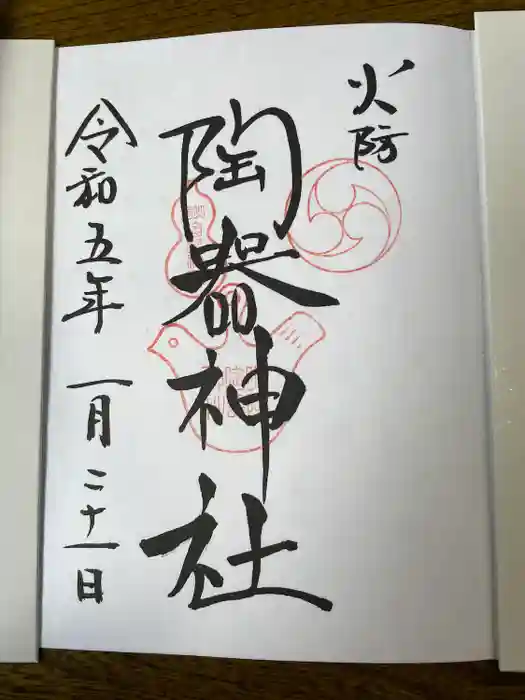 火防
陶器神社
令和五年一月二十一日